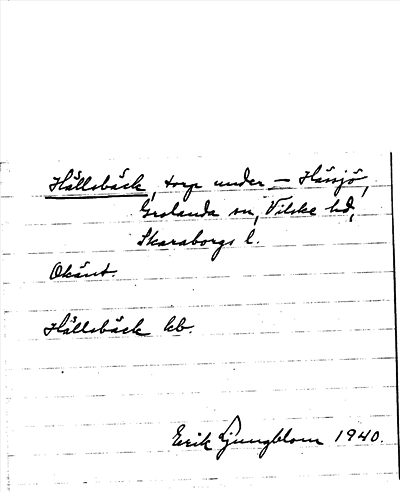 Hällsbäck, torp under – Hässjö,
Grolanda sn, Vilske hd,
Skaraborgs l.
Okänt.
Hällsbäck kb.
Erik Ljungblom 1940.